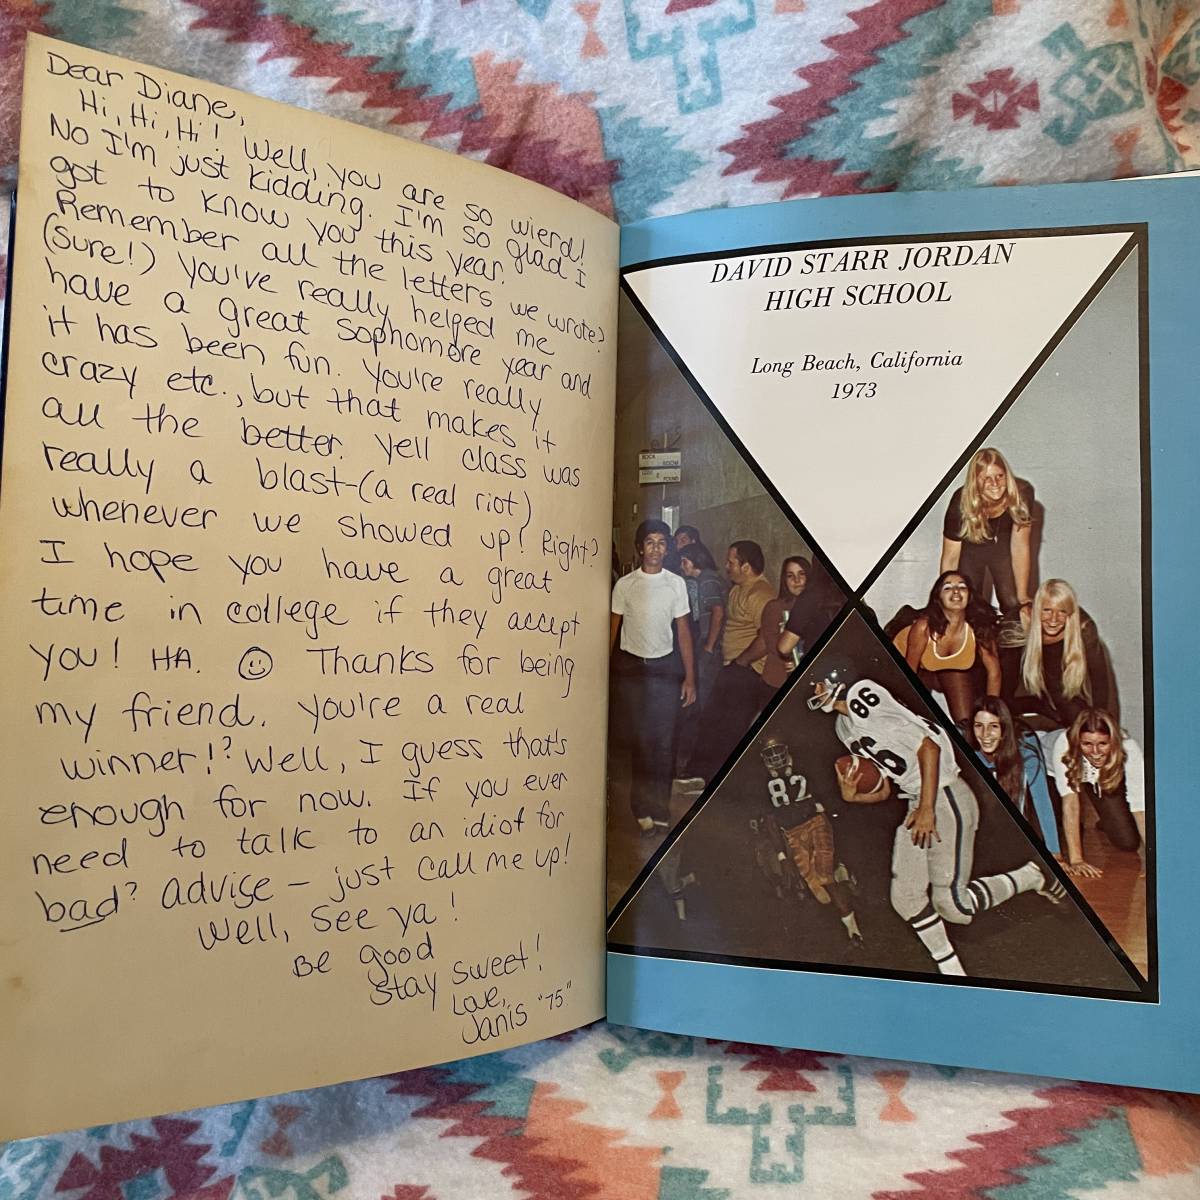 Dear Diane,
Hi, Hi, Hi! Well, you are so wierd!
No I'm just kidding. I'm so glad I
got to know you this year.
Remember all the letters we wrote?
(sure!) You've really helped me
have a great sophomore year and
it has been fun. You're really
crazy etc., but that makes it
all the better. Yell class was
really a blast-(a real riot)
whenever we showed up! Right?
I hope you have a great
time in college if they accept
you! HA. ☺ Thanks for being
my friend. You're a real
winner!? Well, I guess that's
enough for now. If you ever
need to talk to an idiot for
bad? advise – just call me up!
Well, see ya!
Be good
Stay sweet!
Love,
Janis "75"
DAVID STARR JORDAN
HIGH SCHOOL
Long Beach, California
1973
86
82